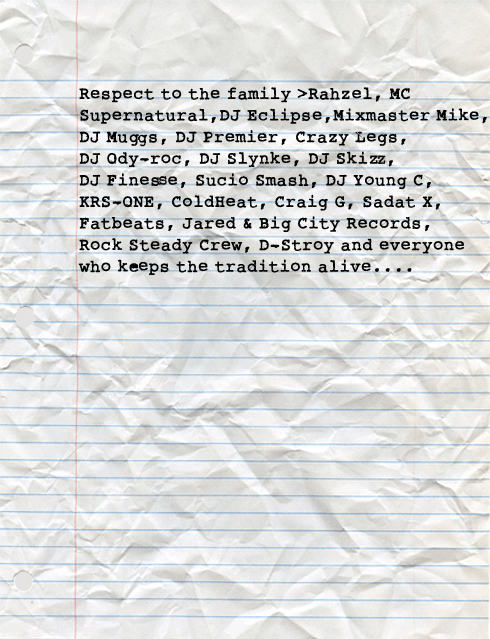 Respect to the family >Rahzel, MC
Supernatural,DJ Eclipse,Mixmaster Mike,
DJ Muggs, DJ Premier, Crazy Legs,
DJ Ody-roc, DJ Slynke, DJ Skizz,
DJ Finesse, Sucio Smash, DJ Young C,
KRS-ONE, ColdHeat, Craig G, Sadat X,
Fatbeats, Jared & Big City Records,
Rock Steady Crew, D-Stroy and everyone
who keeps the tradition alive....